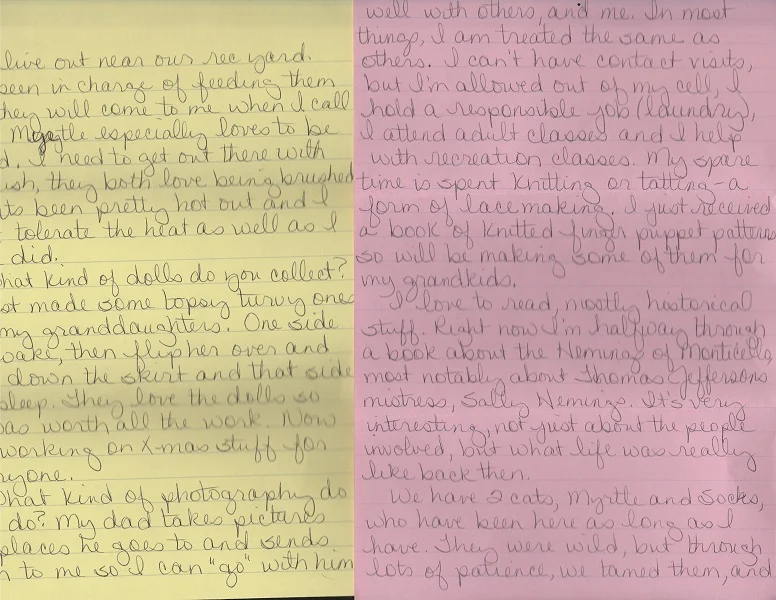 live out near our rec yard.
been in charge of feeding them
they will come to me when I call
Myrtle especially loves to be
d. I need to get out there with
ush, they both love being brushed
its been pretty hot out and I
tolerate the heat as well as I
did.
hat kind of dolls do you collect?
st made some topsy turvy ones
my granddaughters. One side
wake, then flip her over and
down the skirt and that side
sleep. They love the dolls so
as worth all the work. Now
working on X-mas stuff for
ryone.
hat kind of photography do
do? My dad takes pictures
places he goes to and sends
to me so I can "go" with him
well with others, and me. In most
things, I am treated the same as
others. I can't have contact visits,
but I'm allowed out of my cell, I
hold a responsible job (laundry),
I attend adult classes and I help
with recreation classes. My spare
time is spent knitting or tatting - a
form of lacemaking. I just received
a book of knitted finger puppet patterns
so will be making some of them for
my grandkids.
I love to read, mostly historical
stuff. Right now I'm halfway through
a book about the Hemings of Monticello,
most notably about Thomas Jeffersons
mistress, Sally Hemings. It's very
interesting, not just about the people
involved, but what life was really
like back then.
We have 2 cats, Myrtle and Socks,
who have been here as long as I
have. They were wild, but through
lots of patience, we tamed them, and